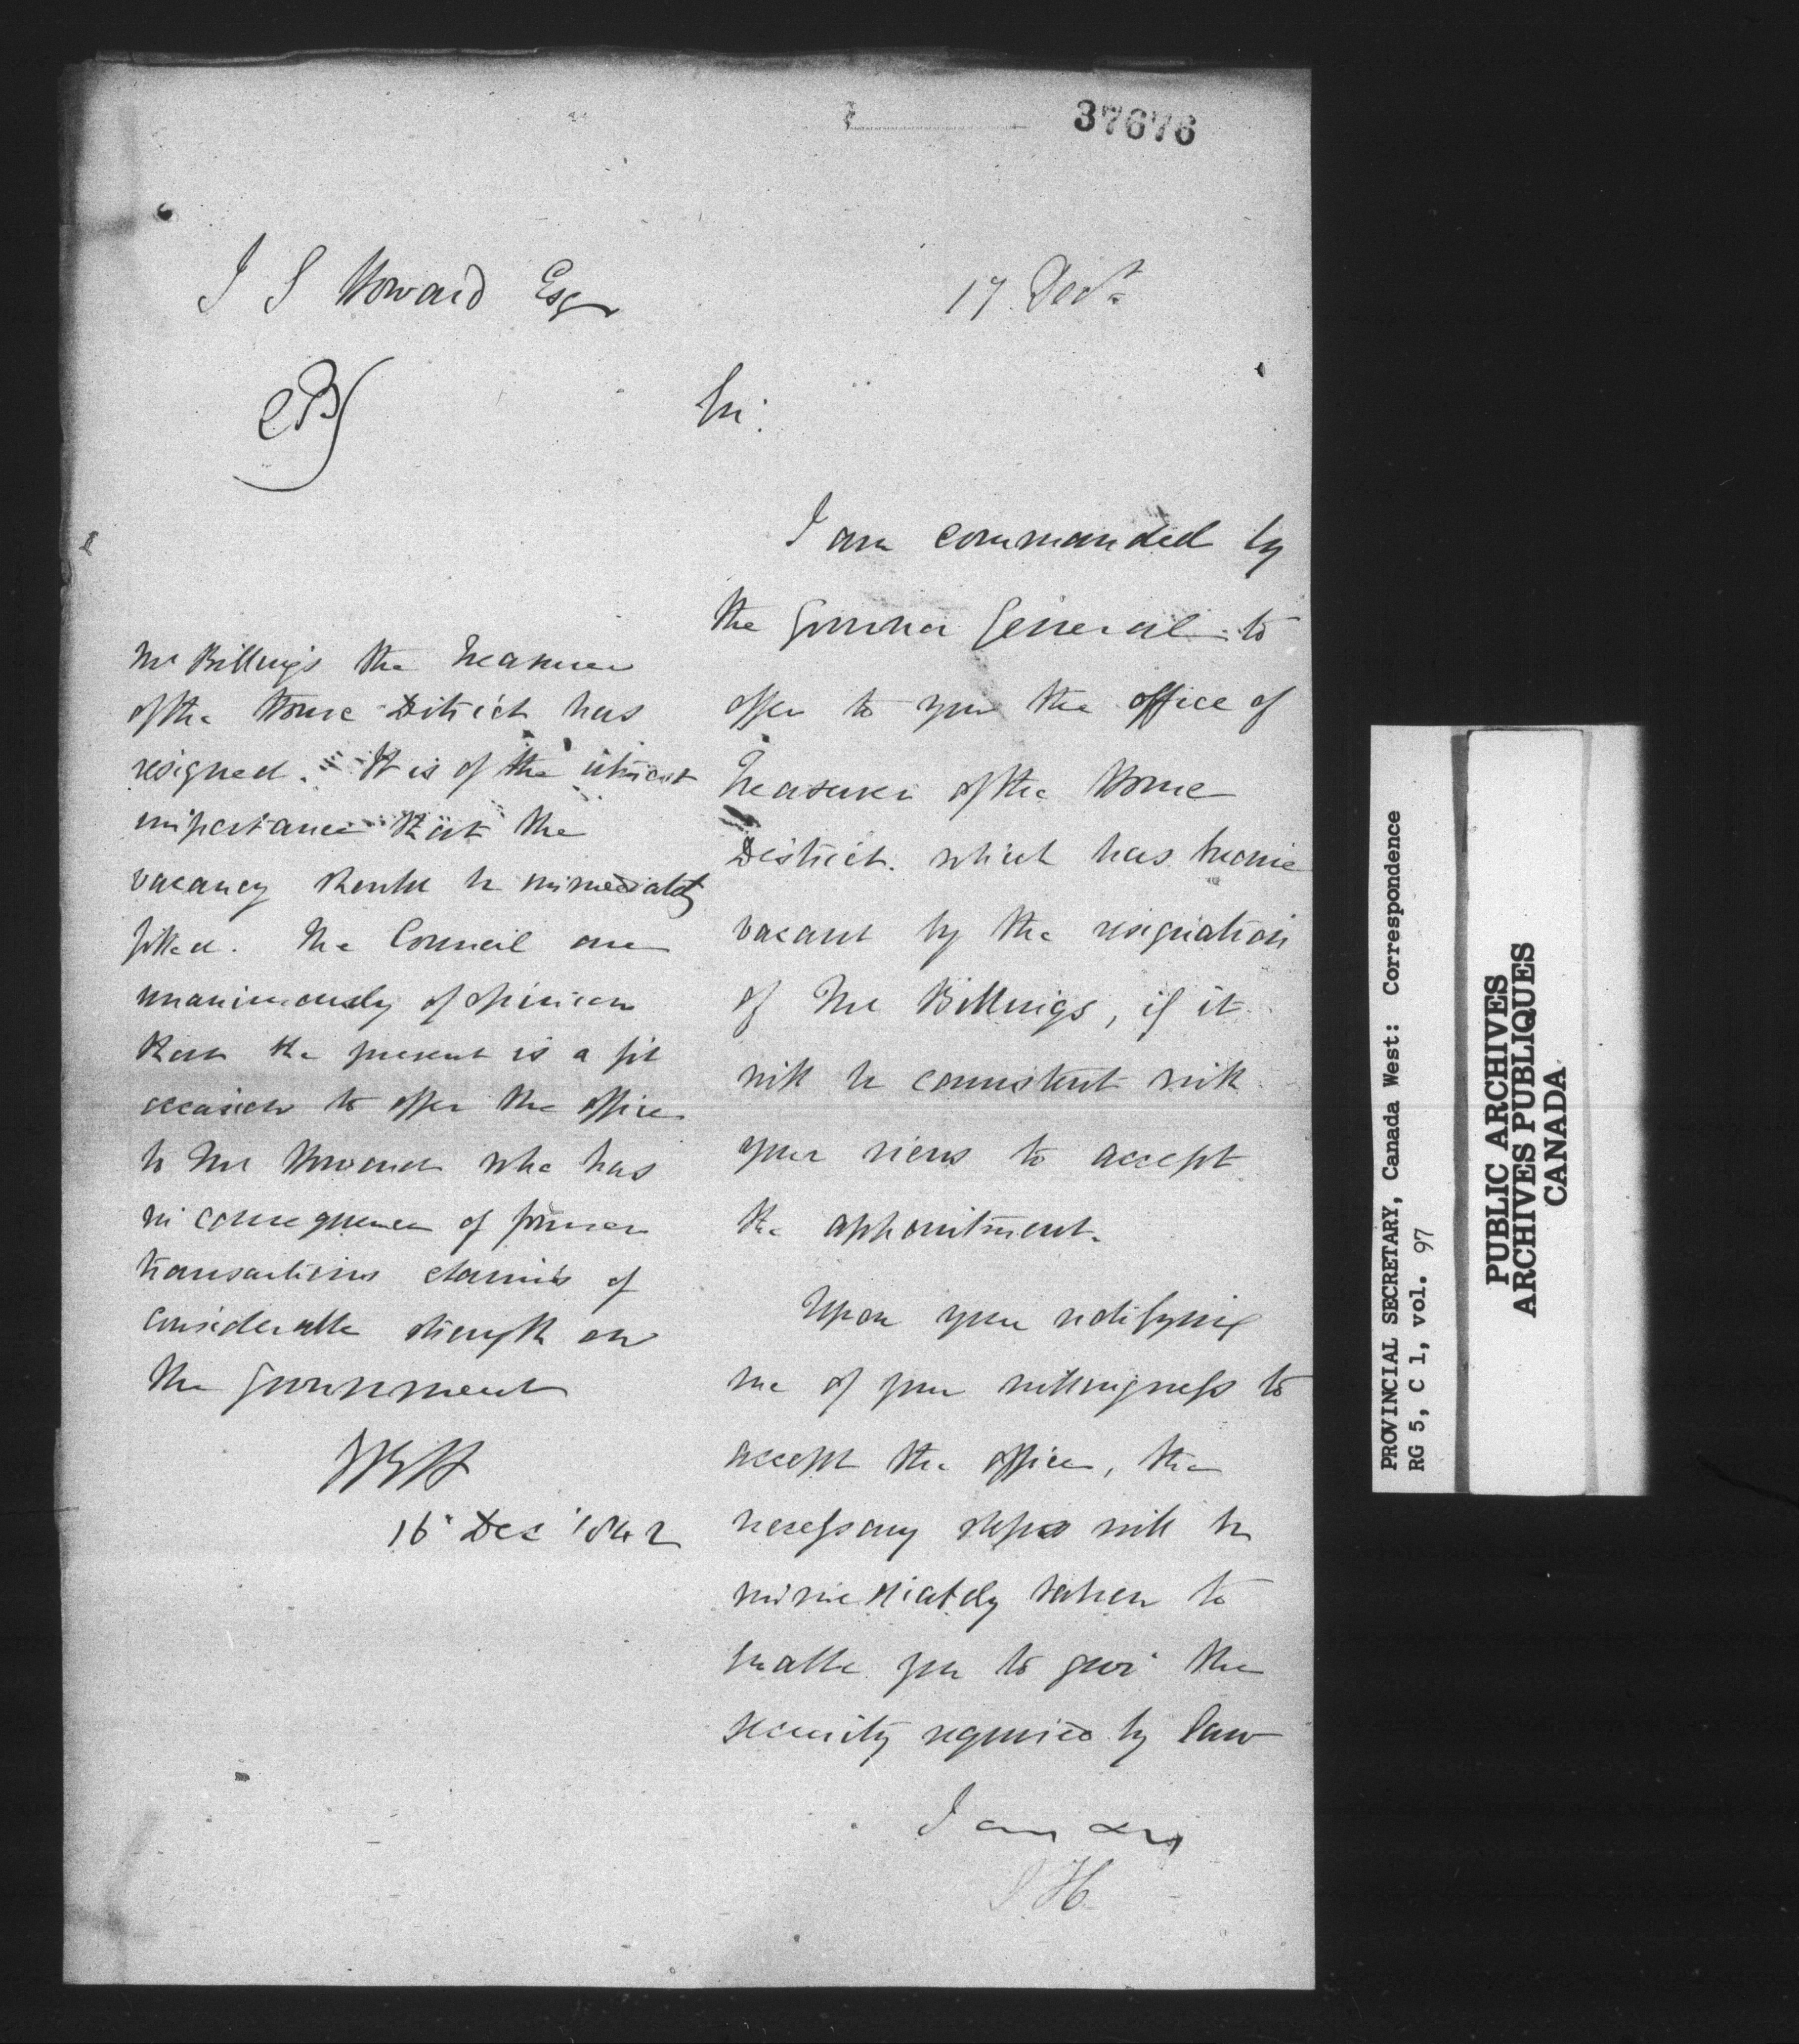 37676
J S Howard Esqr
17 Decr
Sir:
I am commanded by
the Governor General to
offer to you the office of
Treasurer of the Home
District. which has become
vacant by the resignation
of Mr Billings, if it
will be consistent with
your views to accept
the appointment.
Upon your notifying
me of your willingness to
accept the office, the
necessary steps will be
immediately taken to
enable you to give the
security required by law
I am &c
S H
Mr Billings the Treasurer
of the Home District has
resigned. It is of the utmost
importance that the
vacancy should be immediately
filled. The Council are
unanimously of opinion
that the present is a fit
occasion to offer the office
to Mr Howard who has
in consequence of former
transactions claims of
considerable strength on
the Government
16 Dec 1842
PROVINCIAL SECRETARY, Canada West: Correspondence
RG 5, C 1, vol. 97
PUBLIC ARCHIVES
ARCHIVES PUBLIQUES
CANADA